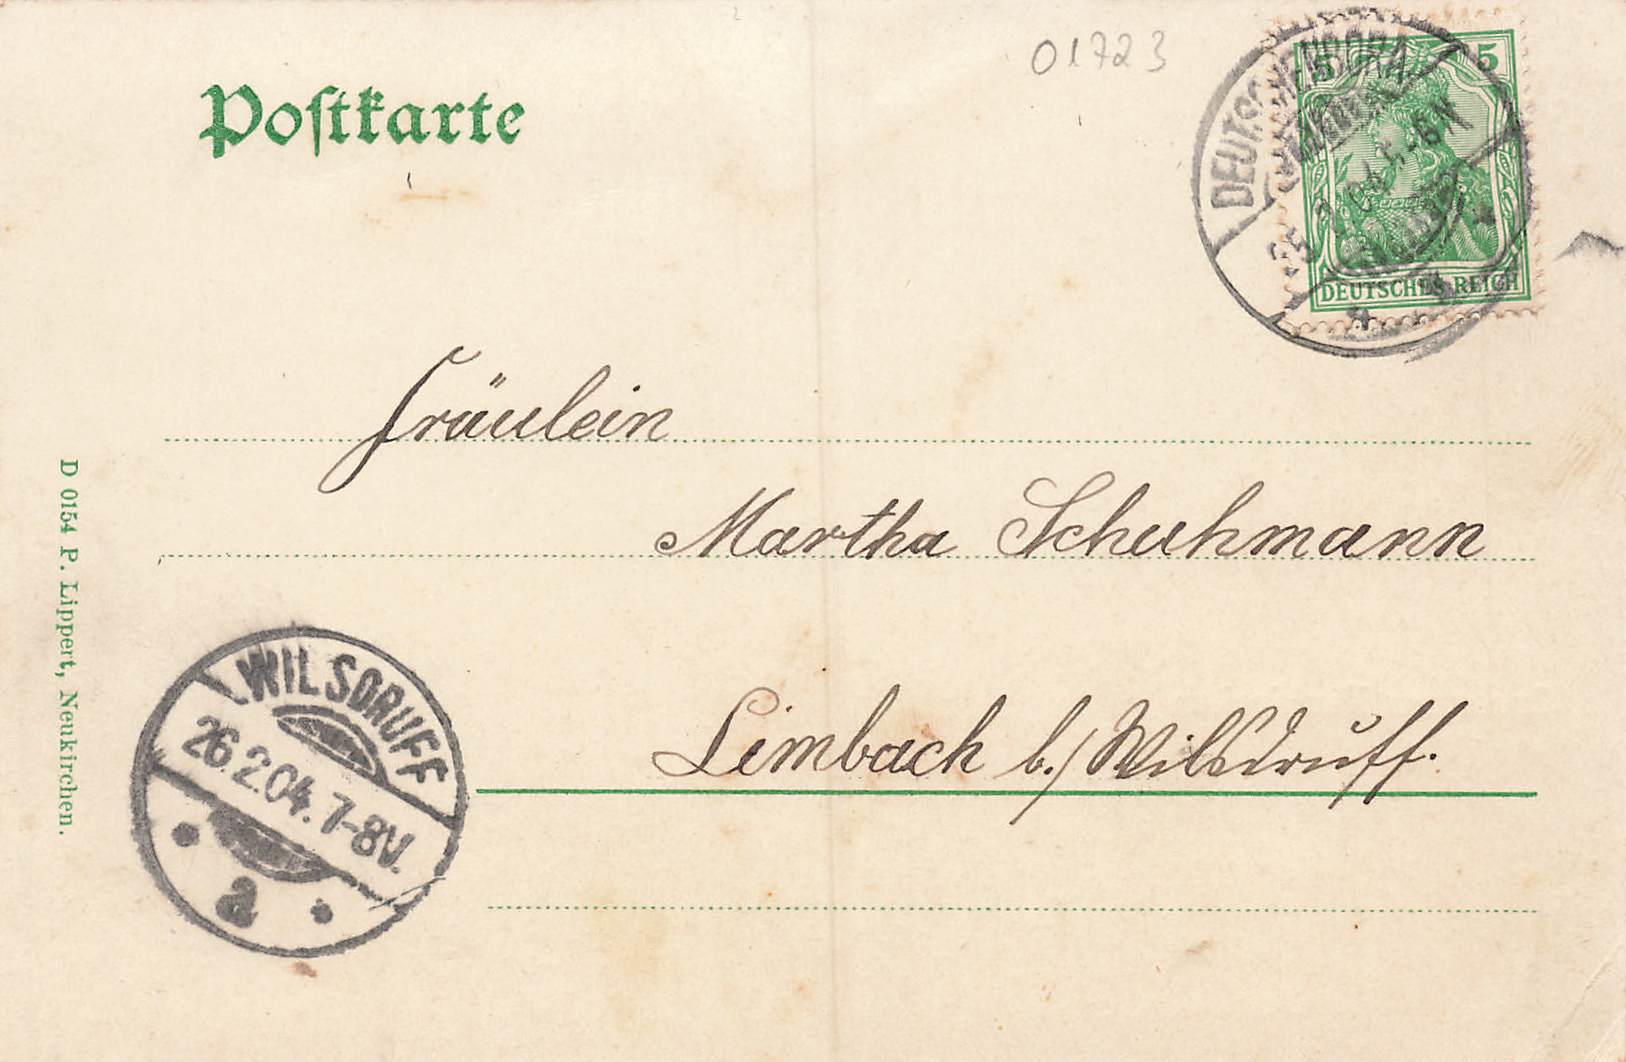 01723
Postkarte
5 5
DEUTSCHENBORA
DEUTSCHES REICH
Fräulein
Martha Schuhmann
Limbach b./Wilsdruff.
D 0154 P. Lippert, Neukirchen.
WILSDRUFF
26.2.04. 7-8V.
a